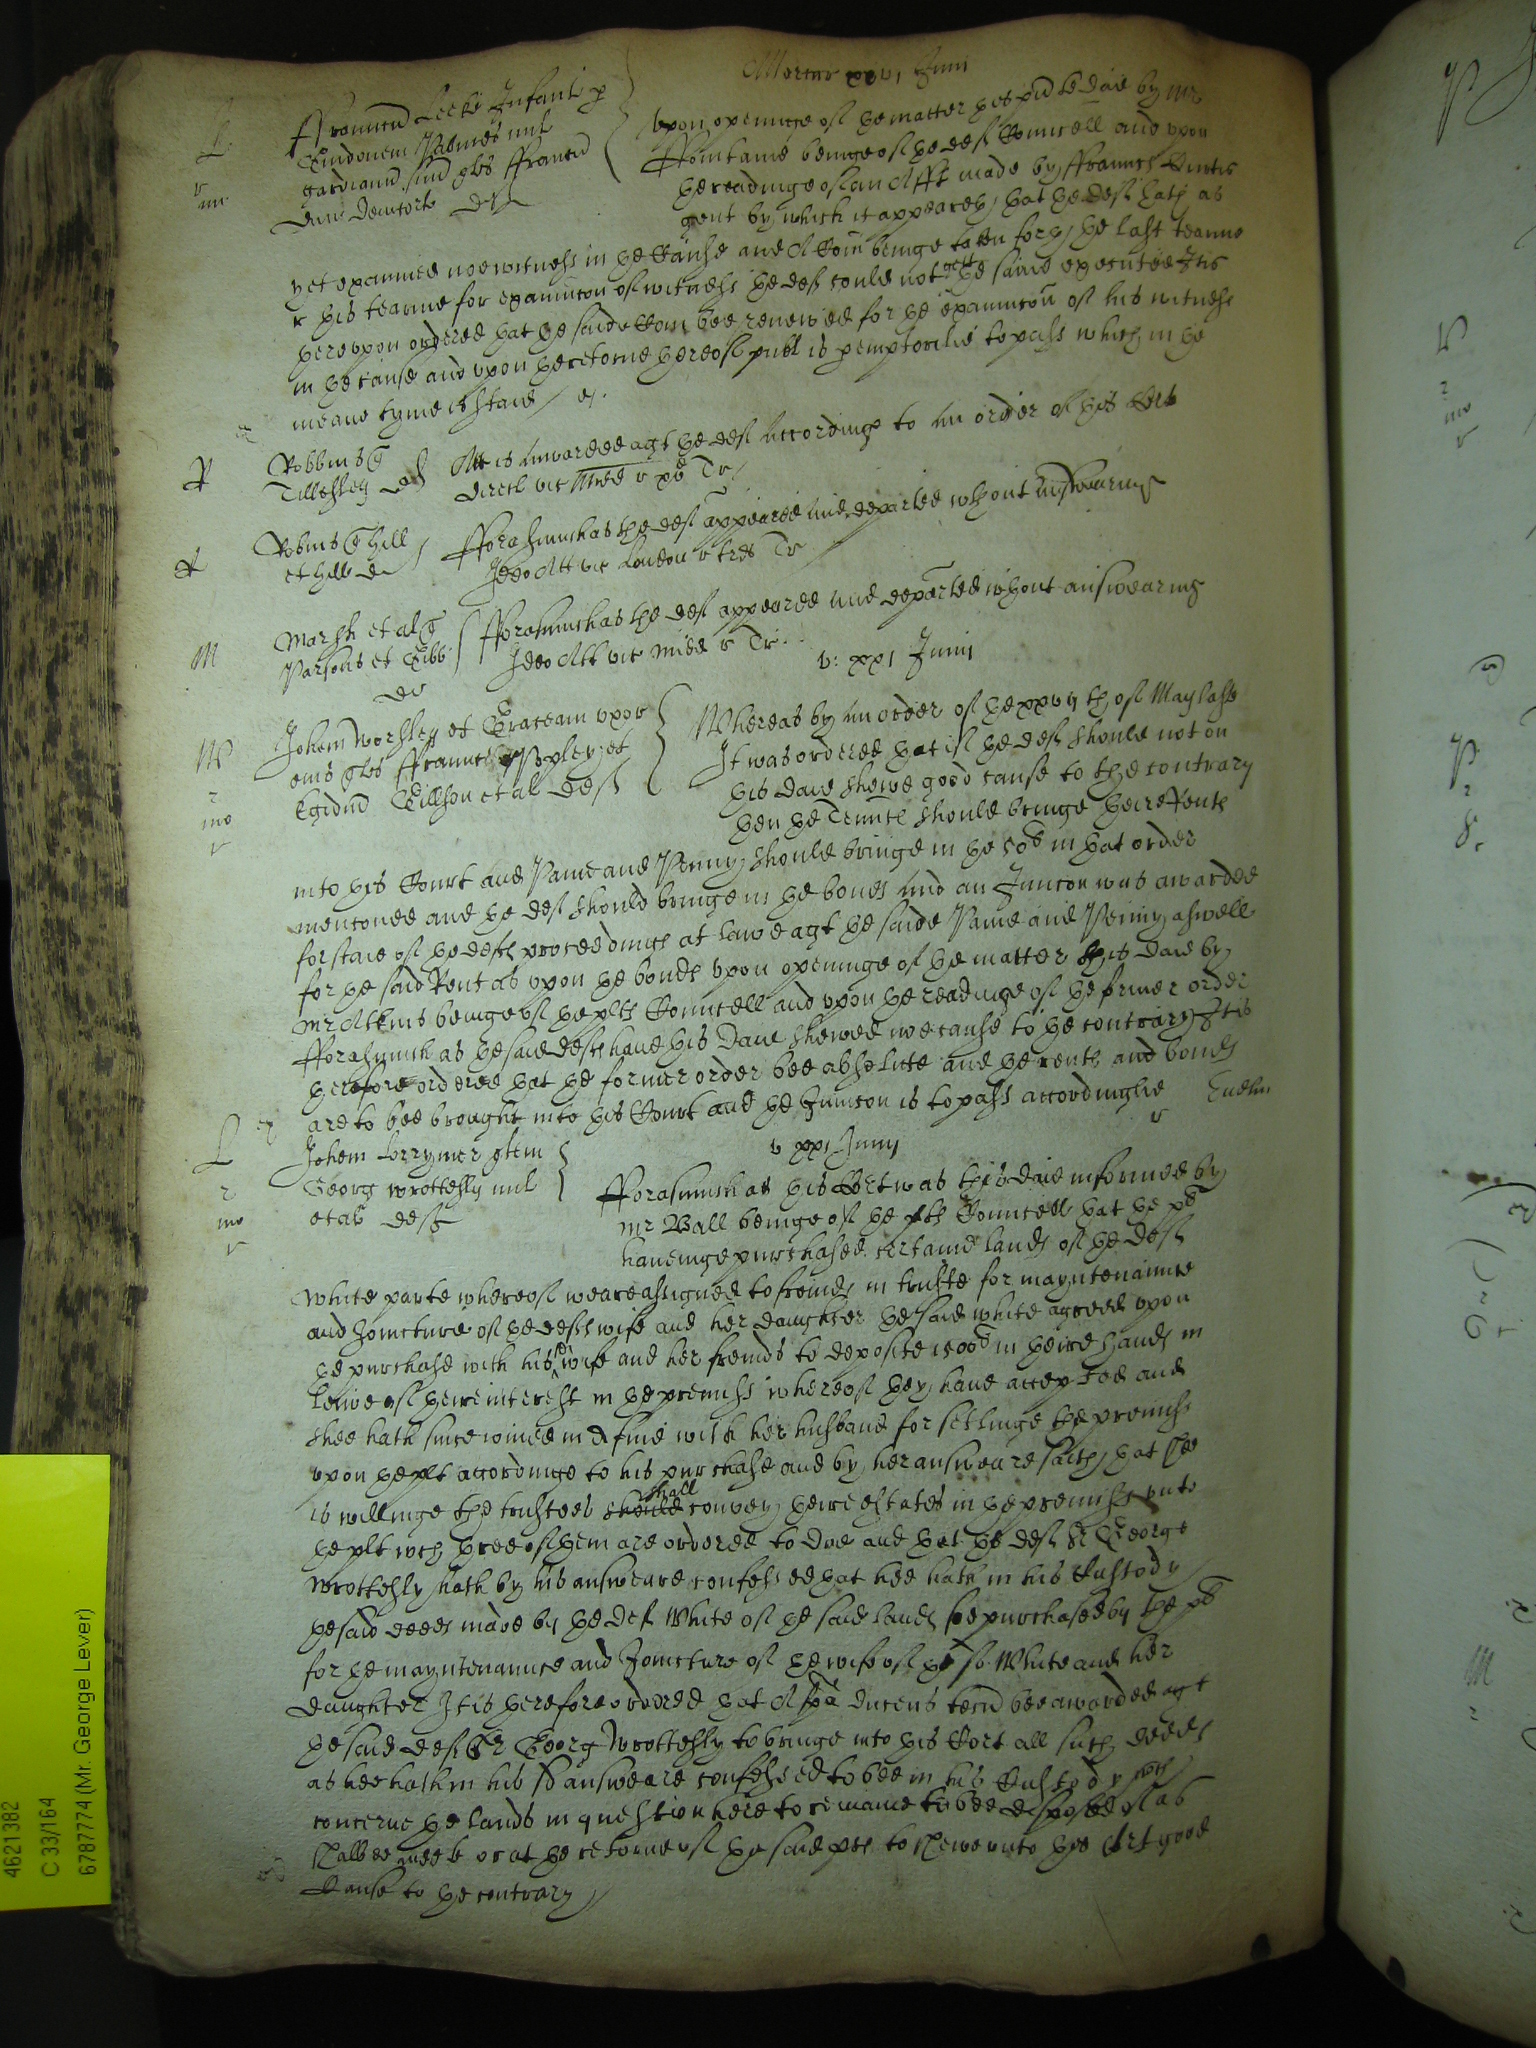 Martis xxvi Junii
L
Franncu Leeke Infant p
Gardianu suu quer Franncu
def
Upon openinge of the matter this pnte daie by Mr
Fountaine beinge of the def Councell and upon
the readinge of an Afft made by Frauncs Curtis
gent by which it appeareth that the def hath as
yet examined noe witness in the Cause and A Com beinge taken forth the last tearme
& this tearme for examinacon of witness the def could not gett the same executed It is
thereupon ordered that the saide Com bee renewed for the examinacon of his witness
in the cause and upon the retorne thereof publ is peremptorilie to pass which in the
meane tyme is staid
R
Robbins q
Tillesley def
Att is awarded agt the def accordinge to an order of this Cort
direct vic Midd r xv Tr
R
Robins q Hill
et Hill def
Forasmuch as the def appeared and departed wthout answearinge
Ideo Att vic London r tres Tr
M
Marsh et al q
Parsons et Gibb
def
Forasmuch as the def appeared and departed wthout answearing
Ideo Att vic Midd r Tr
v: xxi Junii
W
Johem Worsley et Graceam uxor
eius quer Franncs Appley et
Egidiu Willson et al def
Whereas by an order of the xxvii th of May last
It was ordered that if the def should not on
this daie shewe good cause to the contrary
then the Tennts should bringe theire Rents
into this Court and Paine and Penny should bringe in the 50l in that order
mentoned and the def should bringe in the bonds and an Junccon was awarded
for staie of the defts proceedings at Lawe agt the saide Paine and Penny aswell
for the said Rent as upon the bonds Upon openinge of the matter this daie by
Mr Atkins beinge of the plts Councell and upon the readinge of the former order
Forasmuch as the said defts have this daie shewed noe cause to the contrary It is
therefore ordered that the former order bee absolute and the rents and bonds
are to bee brought into this Court and the Junccon is to pass accordinglie
v xxi Junii
L
Johem Lorrymer quer
Georg Wrottesly mil
et al def
Forasmuch as this Cort was this daie informed by
Mr Ball beinge of the plts Councell that the pl
haveinge purchased certaine lands of the def
White parte whereof weare assigned to freinds in truste for mayntenannce
and Joincture of the defts wife and her daughter the said White agreed upon
the purchase with his sd wife and her freinds to deposite 1500l in theire hands in
leiwe of theire interest in the premiss whereof they have accepted and
shee hath since ioined in A fine with her husband for setlinge the premiss
upon the plt accordinge to his purchase and by her answeare saith that shee
is willinge the trustees should shall convey theire estates in the premiss unto
the plt wch three of them are ordered to doe and that the def Sr George
Wrottesly hath by his answeare confessed that hee hath in his Custody
the said deeds made by the def White of the said lands soe purchased by the pl
for the mayntenannce and Joincture of the wife of the sd White and her
daughter It is therefore ordered that A spa ducens tecu bee awarded agt
the said def Sr Georg Wrottesly to bringe into this Cort all such deeds
as hee hath in his sd answeare confessed to bee in his Custody wch
concerne the lands in question here to remaine to bee disposed of as
shalbee meete or at the retorne of the said pces to shewe unto this Cort good
Cause to the contrary
4621382
C 33/164
6787774 (Mr. George Lever)